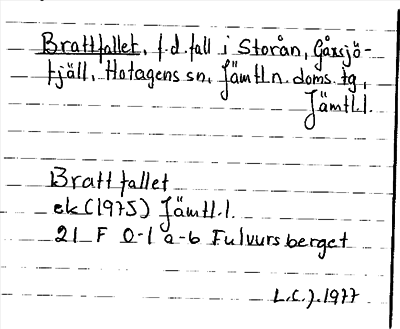 Brattfallet, f.d. fall i Storån, Gåxsjö-
fjäll, Hotagens sn, Jämtl.n. doms. tg,
Jämtl.l.
Brattfallet
ek (1975) Jämtl.l.
21 F 0-1 a-b Fulvursberget
L.C.J. 1977